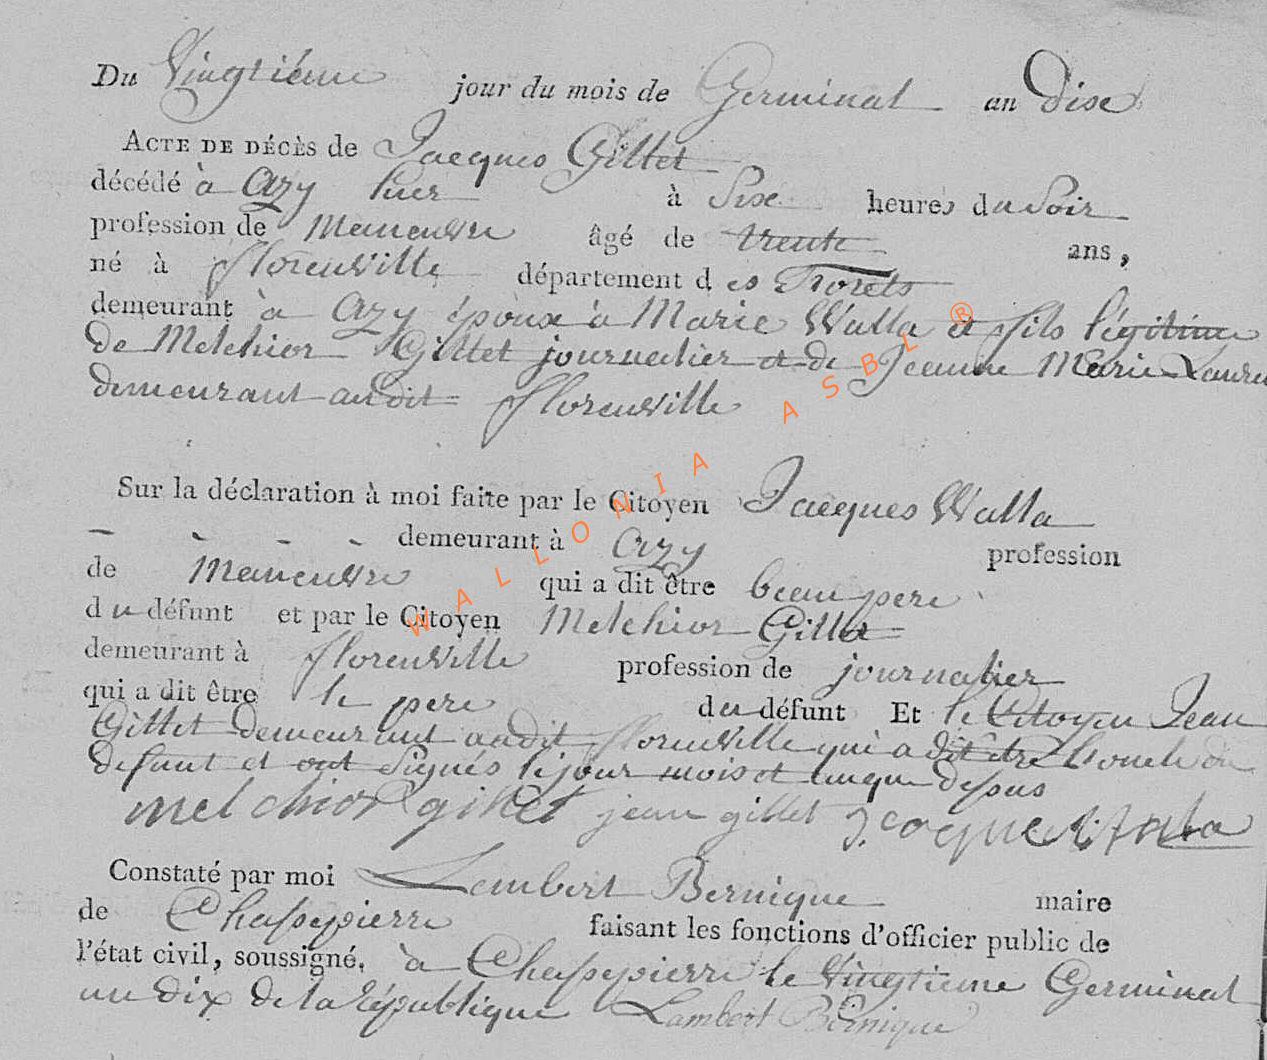 Du Vingtiéme jour du mois de Germinal an Dixe
ACTE DE DÉCÈS de Jacques Gillet
décédé à Azy hier à Sixe heures du Soir
profession de Maneuvre âgé de trente ans,
né à florenville département des Forets
demeurant à Azy époux à Marie Walla et fils légitime
de Melchior Gillet journalier et de Jeanne Marie
demeurant audit florenville
Sur la déclaration à moi faite par le Citoyen Jacques Walla
demeurant à Azy profession
de Maneuvre qui a dit être beau pere
du défunt et par le Citoyen Melchior Gillet
demeurant à florenville profession de journalier
qui a dit être le pere du défunt Et le Citoyen Jean
Gillet demeurant audit florenville qui a dit être du
defunt et ont Signés le jour mois et que dessus
melchior gillet jean gillet
Constaté par moi Lambert Bernique maire
de Chassepierre faisant les fonctions d'officier public de
l'état civil, soussigné. à Chassepierre le Vingtieme Germinal
an Dix de la république Lambert Bernique
WALLONIA ASBL ®